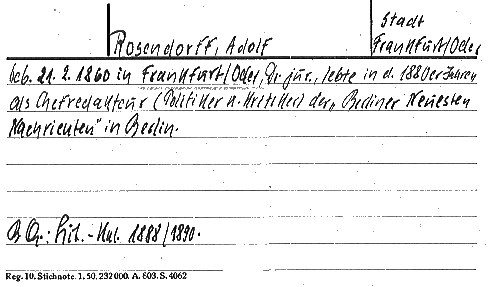 Stadt
Rosendorff, Adolf Frankfurt/Oder
geb. 21.2.1860 in Frankfurt/Oder, Dr. jur., lebte in d. 1880er Jahren
als Chefredakteur (Politiker u. Kritiker) der „Berliner Neuesten
Nachrichten" in Berlin.
B Qu.: Lit.-Kal. 1888/1890.
Reg. 10. Stichnote. 1. 50. 232000. A. 603. S. 4062